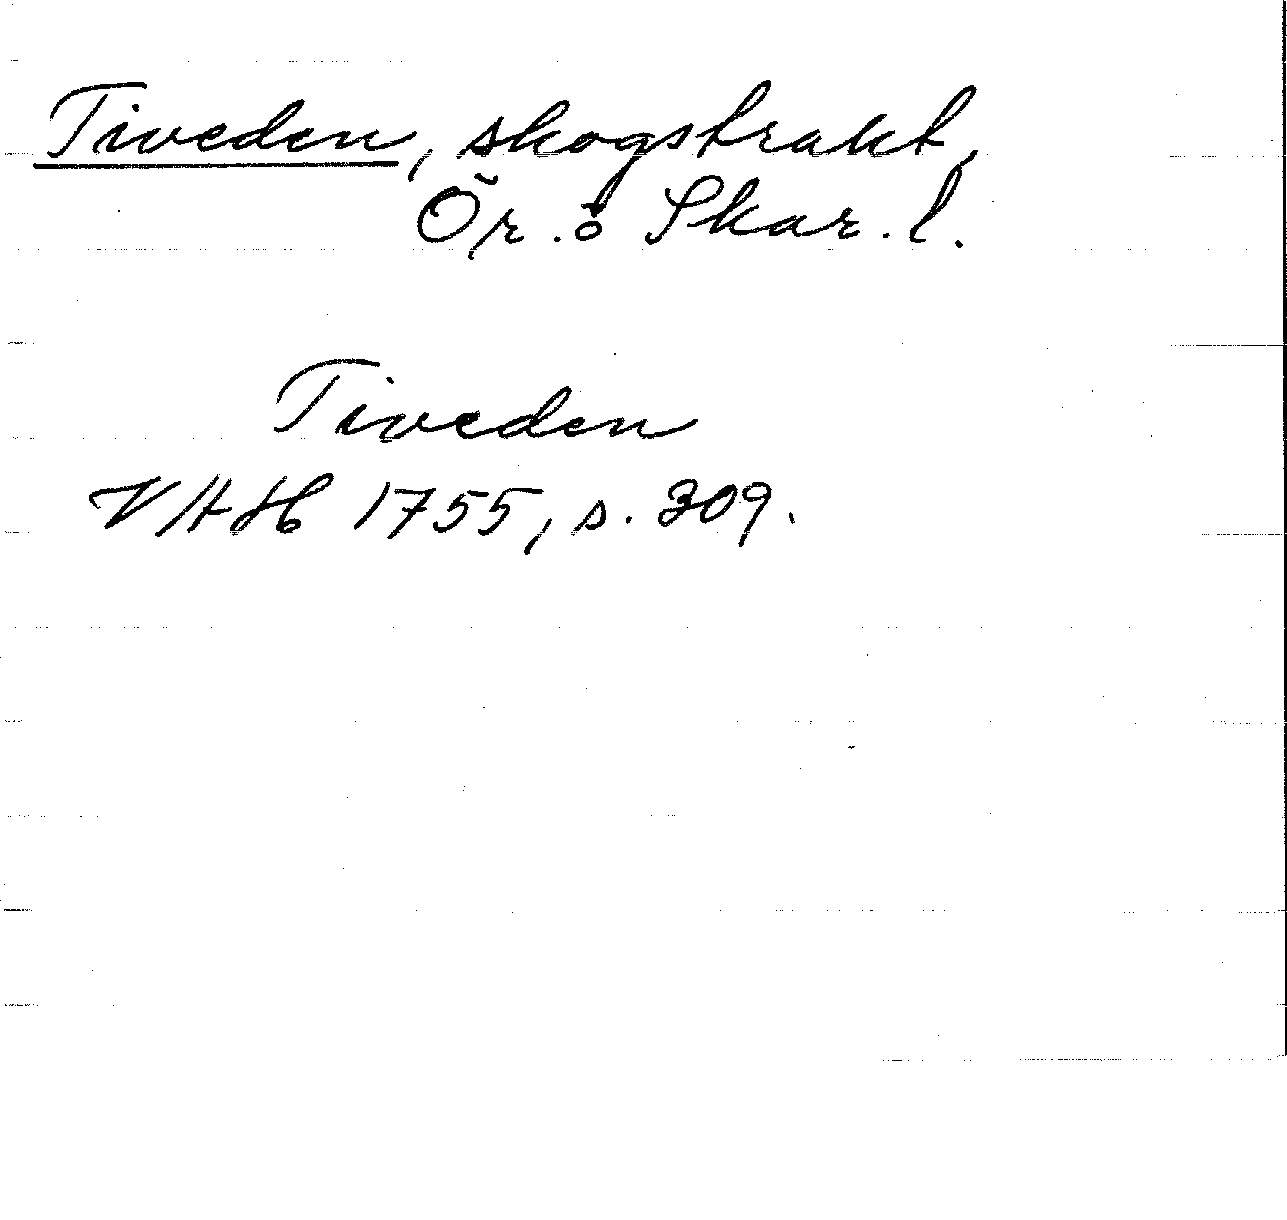 Tiveden, skogstrakt,
Ör. o Skar. l.
Tiveden
VAH 1755, s. 309.